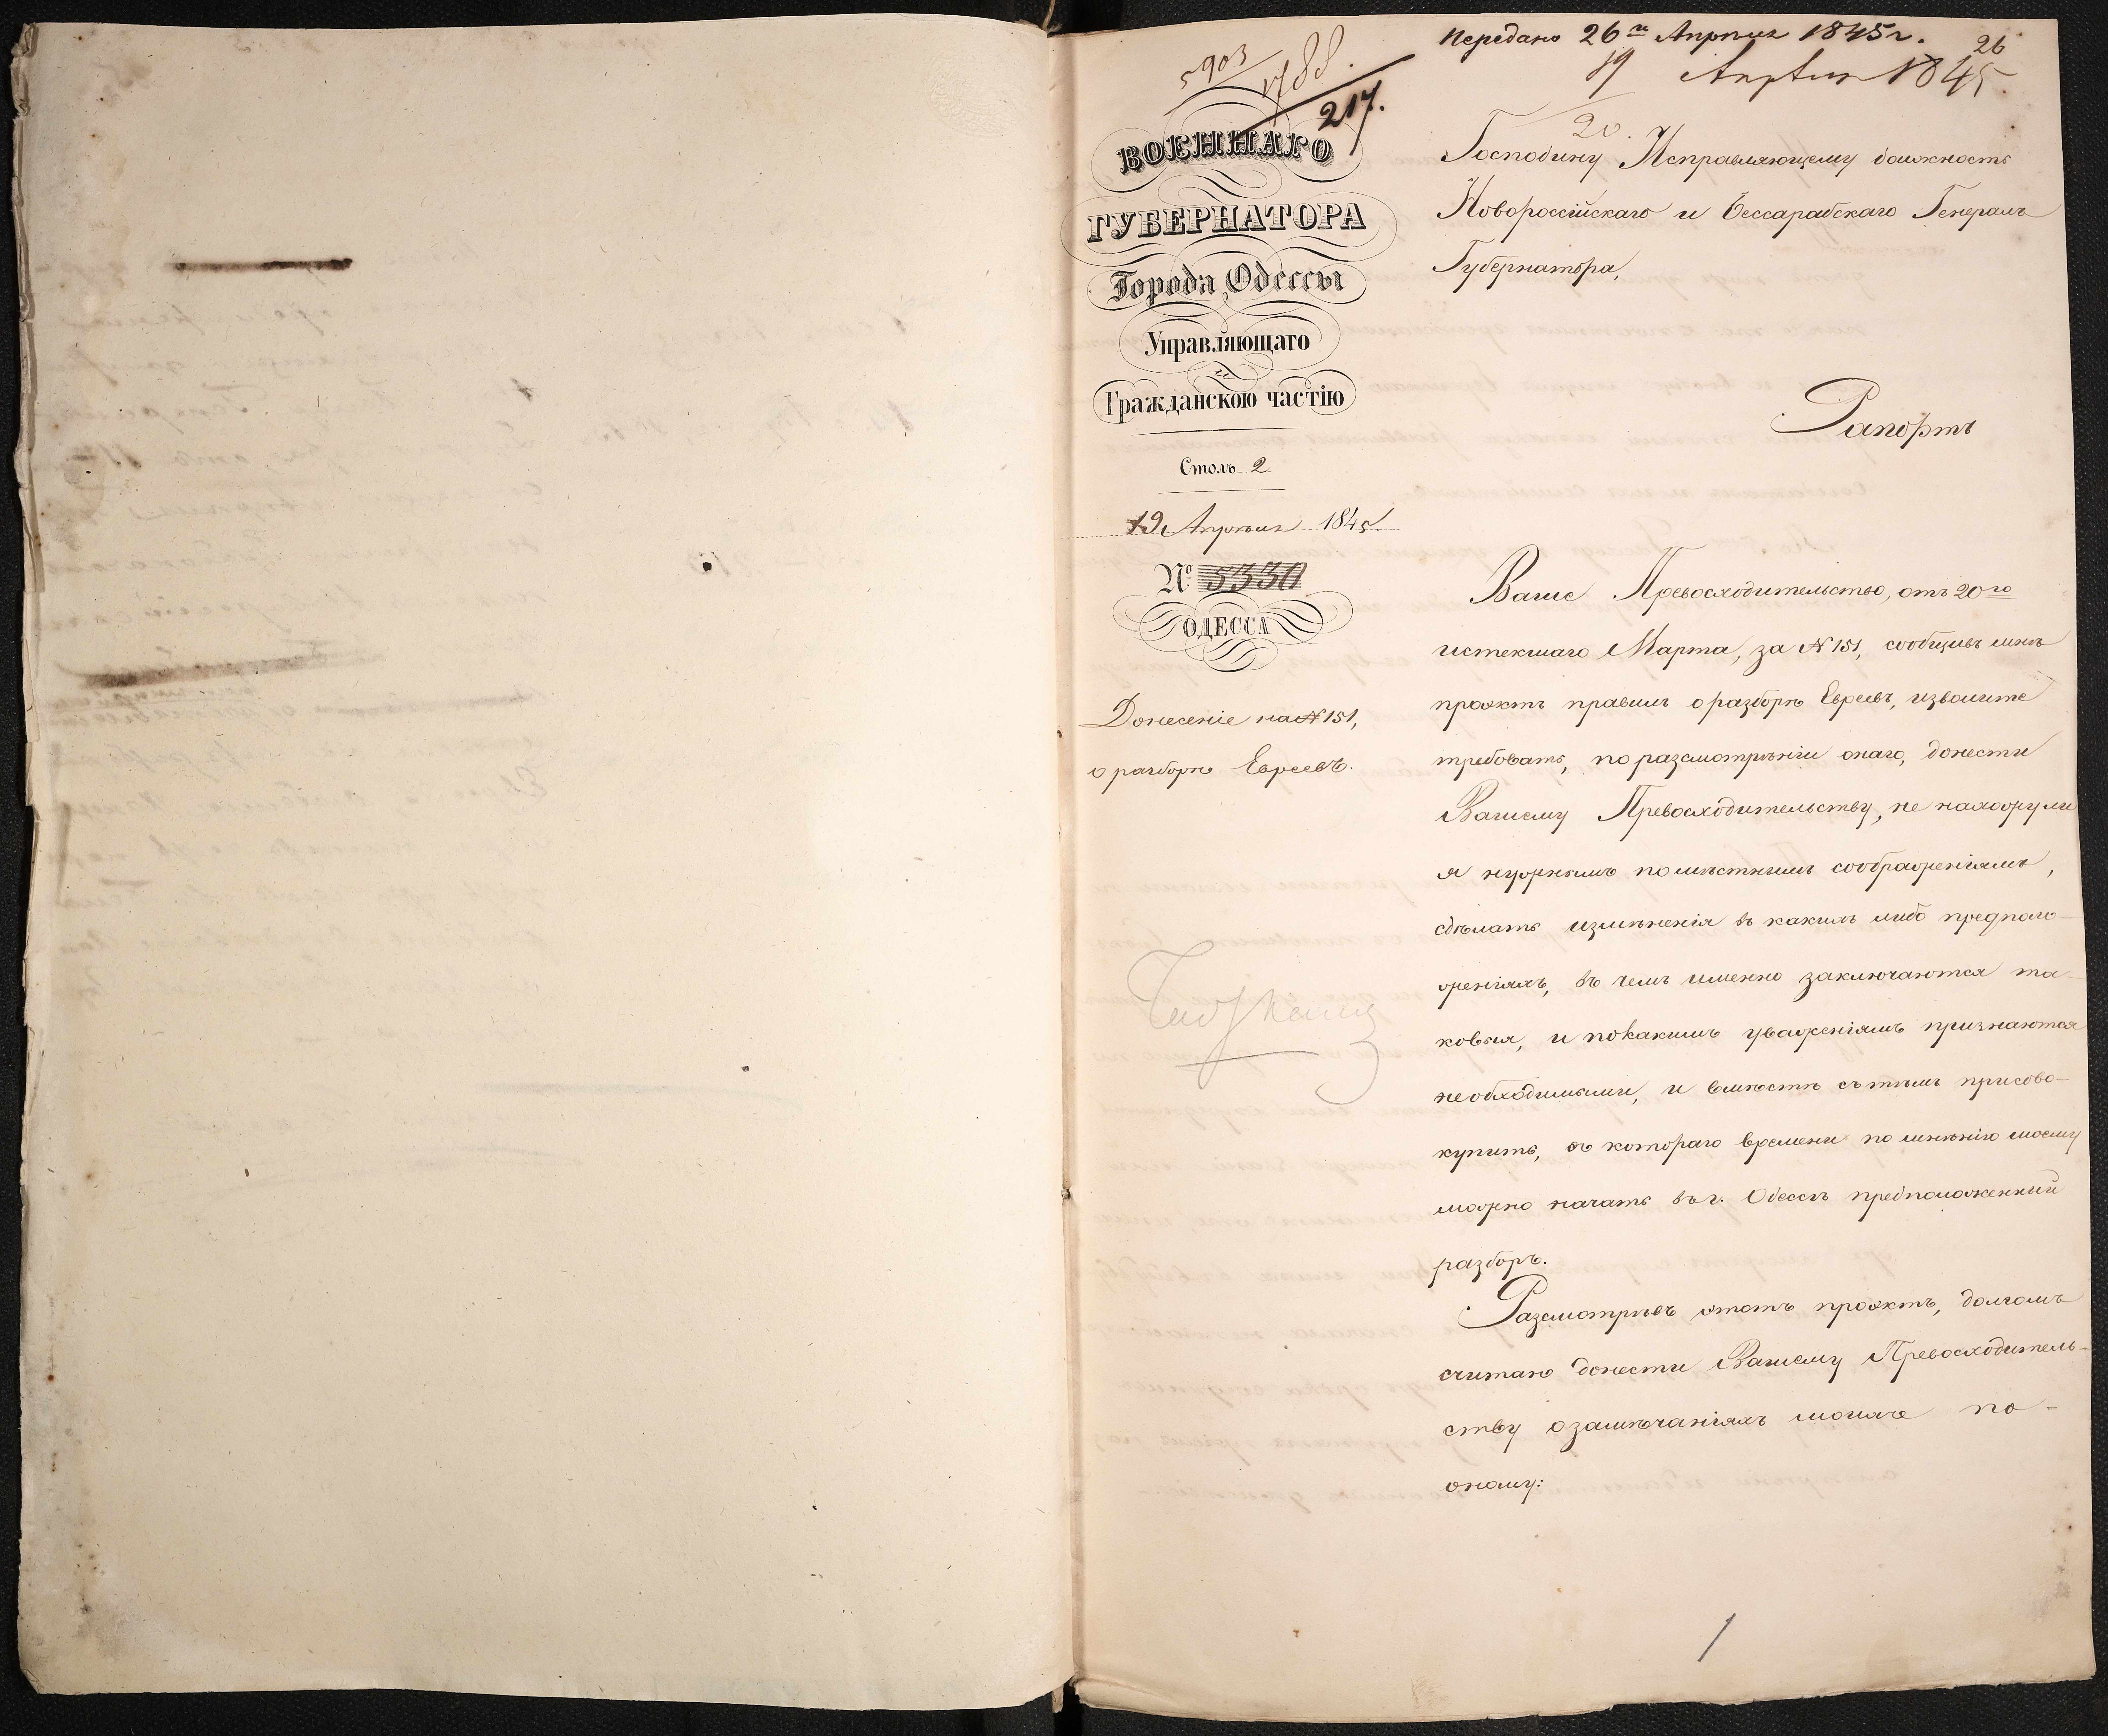 5903
1788.
217.
Передано 26го Апрѣля 1845 г.
26
19 Апрѣля 1845.
20.
ВОЕННАГО
ГУБЕРНАТОРА
Города Одессы
Управляющаго
и
Гражданскою частію
Столъ 2
19 Апрѣля 1845.
№ 5330
ОДЕССА
Донесеніе на № 151,
о разборѣ Евреевъ.
Господину Исправляющему должность
Новороссійскаго и Бессарабскаго Генералъ
Губернатора,
Рапортъ
Ваше Превосходительство, отъ 20го
истекшаго Марта, за № 151, сообщивъ мнѣ
проэктъ правилъ о разборѣ Евреевъ, изволите
требовать, по разсмотрѣніи онаго, донести
Вашему Превосходительству, не нахожу ли
я нужнымъ по мѣстнымъ соображеніямъ,
сдѣлать измѣненія въ какихъ либо предполо-
женіяхъ, въ чемъ именно заключаются та-
ковыя, и по какимъ уваженіямъ признаются
необходимыми, и вмѣстѣ съ тѣмъ присово-
купить, съ котораго времени по мнѣнію моему
можно начать въ г. Одессѣ предположенный
разборъ.
Разсмотрѣвъ этотъ проэктъ, долгомъ
считаю донести Вашему Превосходитель-
ству о замѣчаніяхъ моихъ по-
оному: